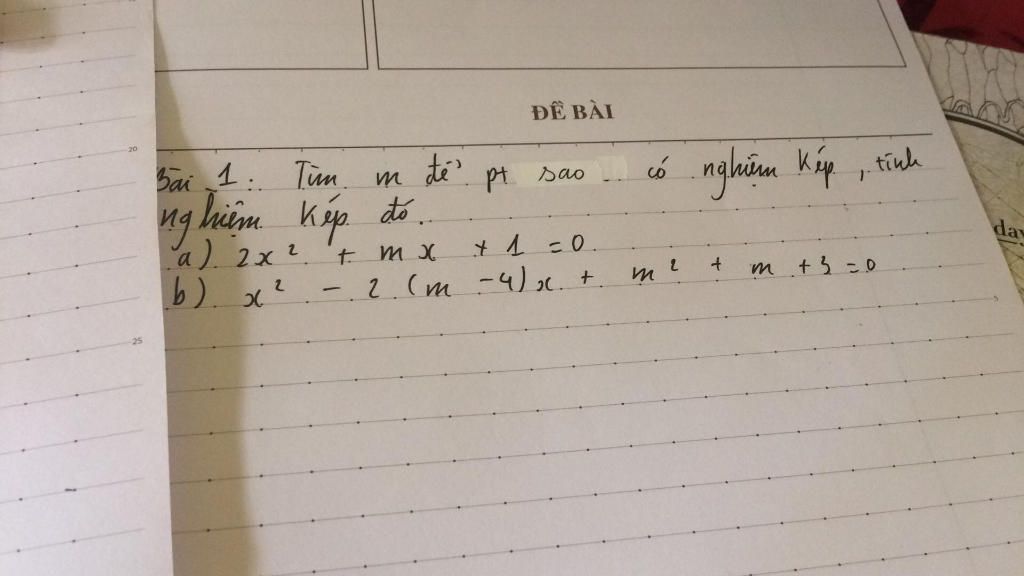 ĐỀ BÀI
20
Bài 1: Tìm m để pt sao có nghiệm kép, tính
nghiệm kép đó.
a) 2x² + mx + 1 = 0
b) x² - 2 (m - 4)x + m² + m + 3 = 0
5
25
day